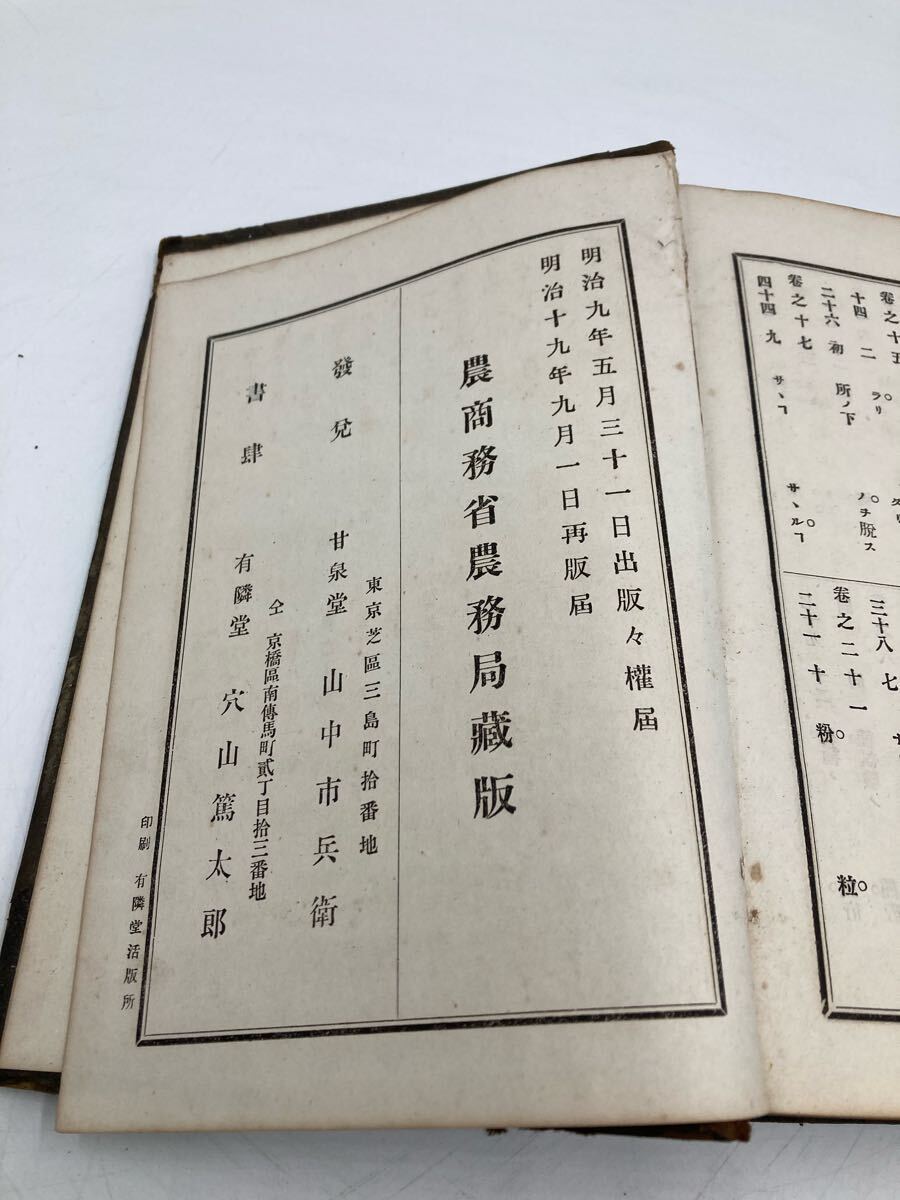 卷之十五
十四 二 ラリ
二十六 初 所ノ下 ノチ脫ス
卷之十七
四十四 九 サヽヿ サヽルヿ
三十八 七
卷之二十一
二十一 十 粉 粒
明治九年五月三十一日出版々權屆
明治十九年九月一日再版屆
農商務省農務局藏版
東京芝區三島町拾番地
發兌 甘泉堂 山中市兵衛
仝 京橋區南傳馬町貳丁目拾三番地
書肆 有隣堂 穴山篤太郎
印刷 有隣堂活版所